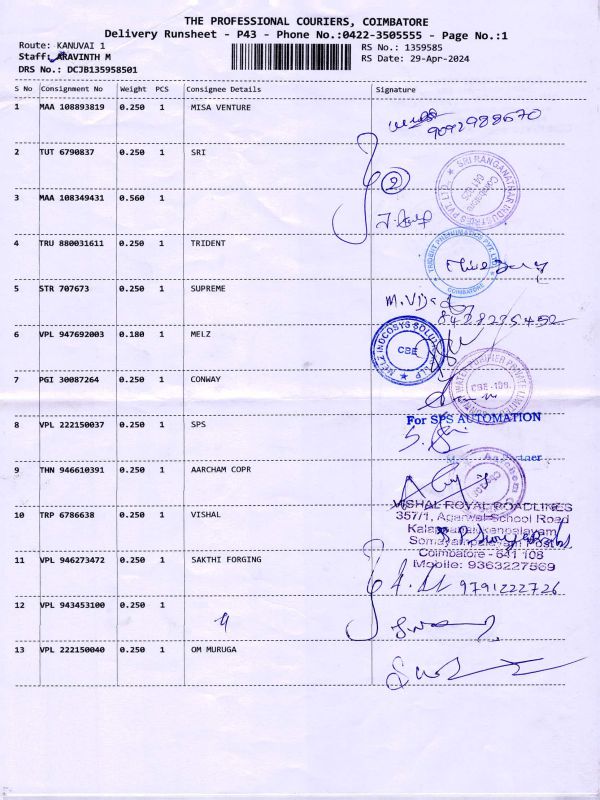 THE PROFESSIONAL COURIERS, COIMBATORE
Delivery Runsheet - P43 - Phone No.:0422-3505555 - Page No.:1
Route: KANUVAI 1
RS No.: 1359585
Staff: ARAVINTH M
RS Date: 29-Apr-2024
DRS No.: DCJB135958501
S No Consignment No Weight PCS Consignee Details Signature
1 MAA 108893819 0.250 1 MISA VENTURE
9092988670
2 TUT 6790837 0.250 1 SRI
2
SRI RANGANATHAR INDUSTRIES PVT LTD
Coimbatore
641 105
3 MAA 108349431 0.560 1
4 TRU 880031611 0.250 1 TRIDENT
TRIDENT PNEUMATICS PVT. LTD.
COIMBATORE
5 STR 707673 0.250 1 SUPREME
8428235452
6 VPL 947692003 0.180 1 MELZ
MELZ INDCOSYS SOLUTION LLP
CBE
7 PGI 30087264 0.250 1 CONWAY
PURIFIER PRIVATE LIMITED
CBE -108.
8 VPL 222150037 0.250 1 SPS
For SPS AUTOMATION
Partner
9 THN 946610391 0.250 1 AARCHAM COPR
Aarcham
10 TRP 6786638 0.250 1 VISHAL
VISHAL ROYAL ROADLINES
357/1, Agarwal School Road
Somayampalayam Post
Coimbatore - 641 108
Mobile: 9363227869
11 VPL 946273472 0.250 1 SAKTHI FORGING
9791222726
12 VPL 943453100 0.250 1
13 VPL 222150040 0.250 1 OM MURUGA